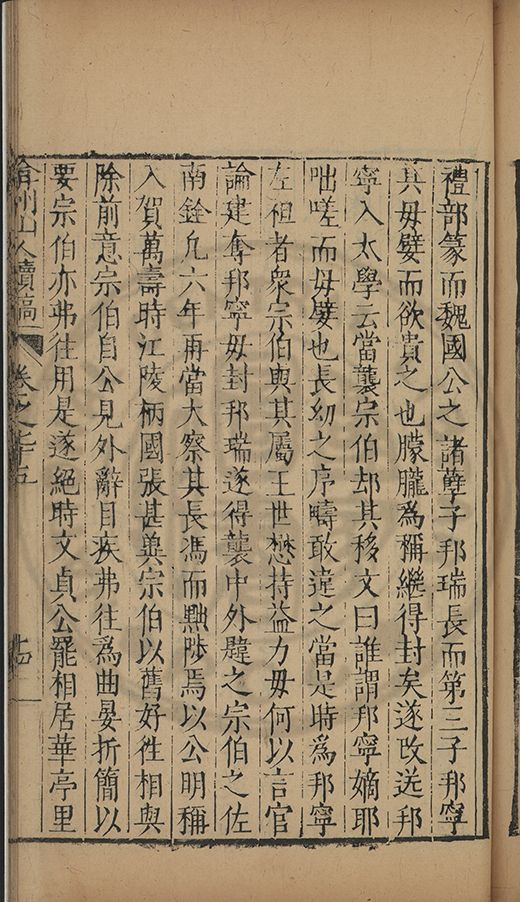 禮部篆而魏國公之諸孽子邦瑞長而第三子邦寧
其母嬖而欲貴之也朦朧為稱繼得封矣遂改送邦
寧入太學云當襲宗伯却其移文曰誰謂邦寧嫡耶
咄嗟而母嬖也長幼之序疇敢違之當是時為邦寧
左袒者衆宗伯與其屬王世懋持益力毋何以言官
論建奪邦寧母封邦瑞遂得襲中外韙之宗伯之佐
南銓凢六年再當大察其長馮而黜陟焉以公明稱
入賀萬壽時江陵柄國張甚冀宗伯以舊好徃相與
除前意宗伯自公見外辭目疾弗往為曲晏折簡以
要宗伯亦弗往用是遂絕時文貞公罷相居華亭里
弇州山人續稿 卷之
十四